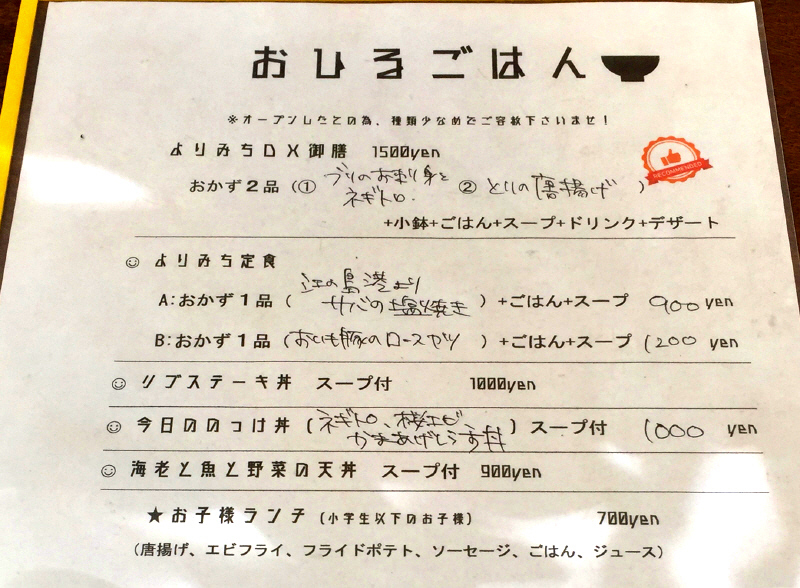 おひるごはん
※オープンしたての為、種類少なめでご容赦下さいませ！
よりみちDX御膳 1500yen
RECOMMENDED
おかず2品（① ブリのお刺し身と ネギトロ ② とりの唐揚げ ）
+小鉢+ごはん+スープ+ドリンク+デザート
☺ よりみち定食
A:おかず1品（ 江の島港より サバの塩焼き ）+ごはん+スープ 900 yen
B:おかず1品（おいも豚のロースカツ ）+ごはん+スープ 1200 yen
☺ リブステーキ丼 スープ付 1000yen
☺ 今日ののっけ丼（ネギトロ、桜エビ、 かまあげしらす丼 ）スープ付 1000 yen
☺ 海老と魚と野菜の天丼 スープ付 900yen
★お子様ランチ（小学生以下のお子様） 700yen
（唐揚げ、エビフライ、フライドポテト、ソーセージ、ごはん、ジュース）